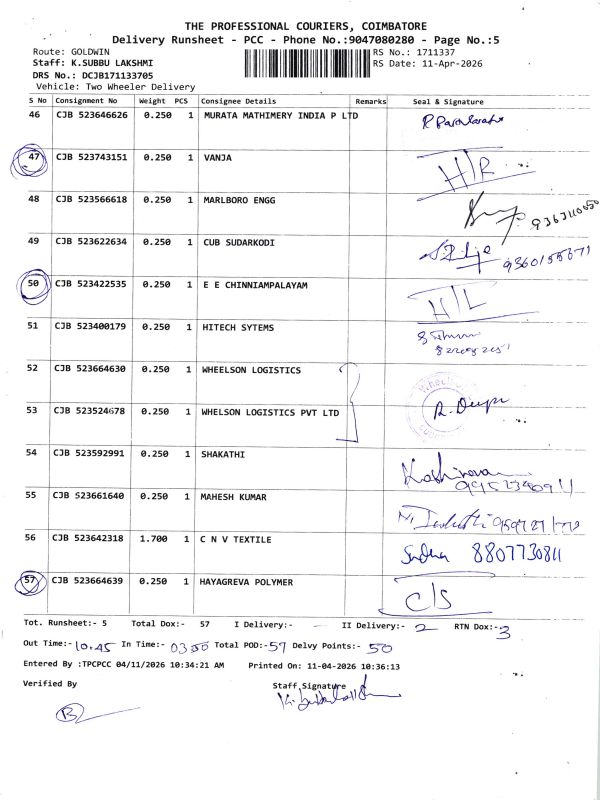 THE PROFESSIONAL COURIERS, COIMBATORE
Delivery Runsheet - PCC - Phone No.:9047080280 - Page No.:5
Route: GOLDWIN
RS No.: 1711337
Staff: K.SUBBU LAKSHMI
RS Date: 11-Apr-2026
DRS No.: DCJB171133705
Vehicle: Two Wheeler Delivery
S No Consignment No Weight PCS Consignee Details Remarks Seal & Signature
46 CJB 523646626 0.250 1 MURATA MATHIMERY INDIA P LTD
47 CJB 523743151 0.250 1 VANJA H/R
48 CJB 523566618 0.250 1 MARLBORO ENGG
49 CJB 523622634 0.250 1 CUB SUDARKODI
50 CJB 523422535 0.250 1 E E CHINNIAMPALAYAM H/L
51 CJB 523400179 0.250 1 HITECH SYTEMS
52 CJB 523664630 0.250 1 WHEELSON LOGISTICS
53 CJB 523524678 0.250 1 WHELSON LOGISTICS PVT LTD
54 CJB 523592991 0.250 1 SHAKATHI
55 CJB 523661640 0.250 1 MAHESH KUMAR
56 CJB 523642318 1.700 1 C N V TEXTILE Sudha 8807730811
57 CJB 523664639 0.250 1 HAYAGREVA POLYMER C/S
Tot. Runsheet:- 5 Total Dox:- 57 I Delivery:- II Delivery:- 2 RTN Dox:- 3
Out Time:- 10.45 In Time:- 03.00 Total POD:- 57 Delvy Points:- 50
Entered By :TPCPCC 04/11/2026 10:34:21 AM Printed On: 11-04-2026 10:36:13
Verified By Staff Signature